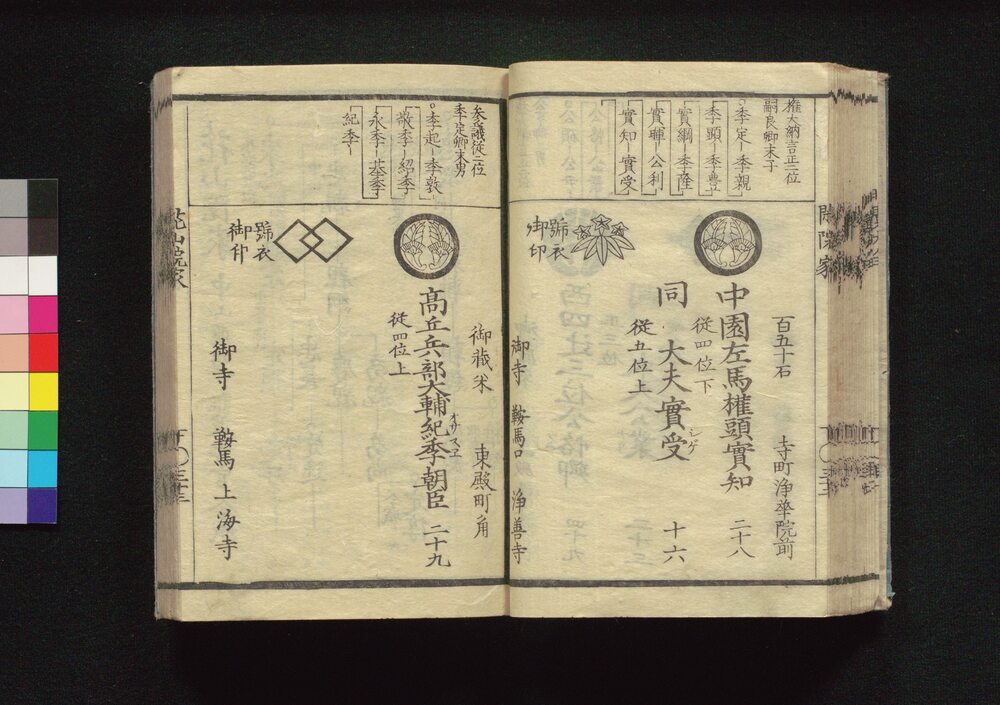 権大納言正三位
嗣良卿末子
○季定―季親
季顕―季豊
實綱―季隆
實暉―公利
實知―實受
百五十石 寺町浄華院前
中園左馬権頭實知 二十八
従四位下
同 大夫實受 十六
シゲ
従五位上
號衣
御印
御寺 鞍馬口 浄善寺
参議従三位
季定卿末男
○季起―季敦
敬季―紹季
永季―基季
紀季―
御蔵米 東殿町角
髙丘兵部大輔紀季朝臣 二十九
オサスヱ
従四位上
號衣
御印
御寺 鞍馬 上海寺